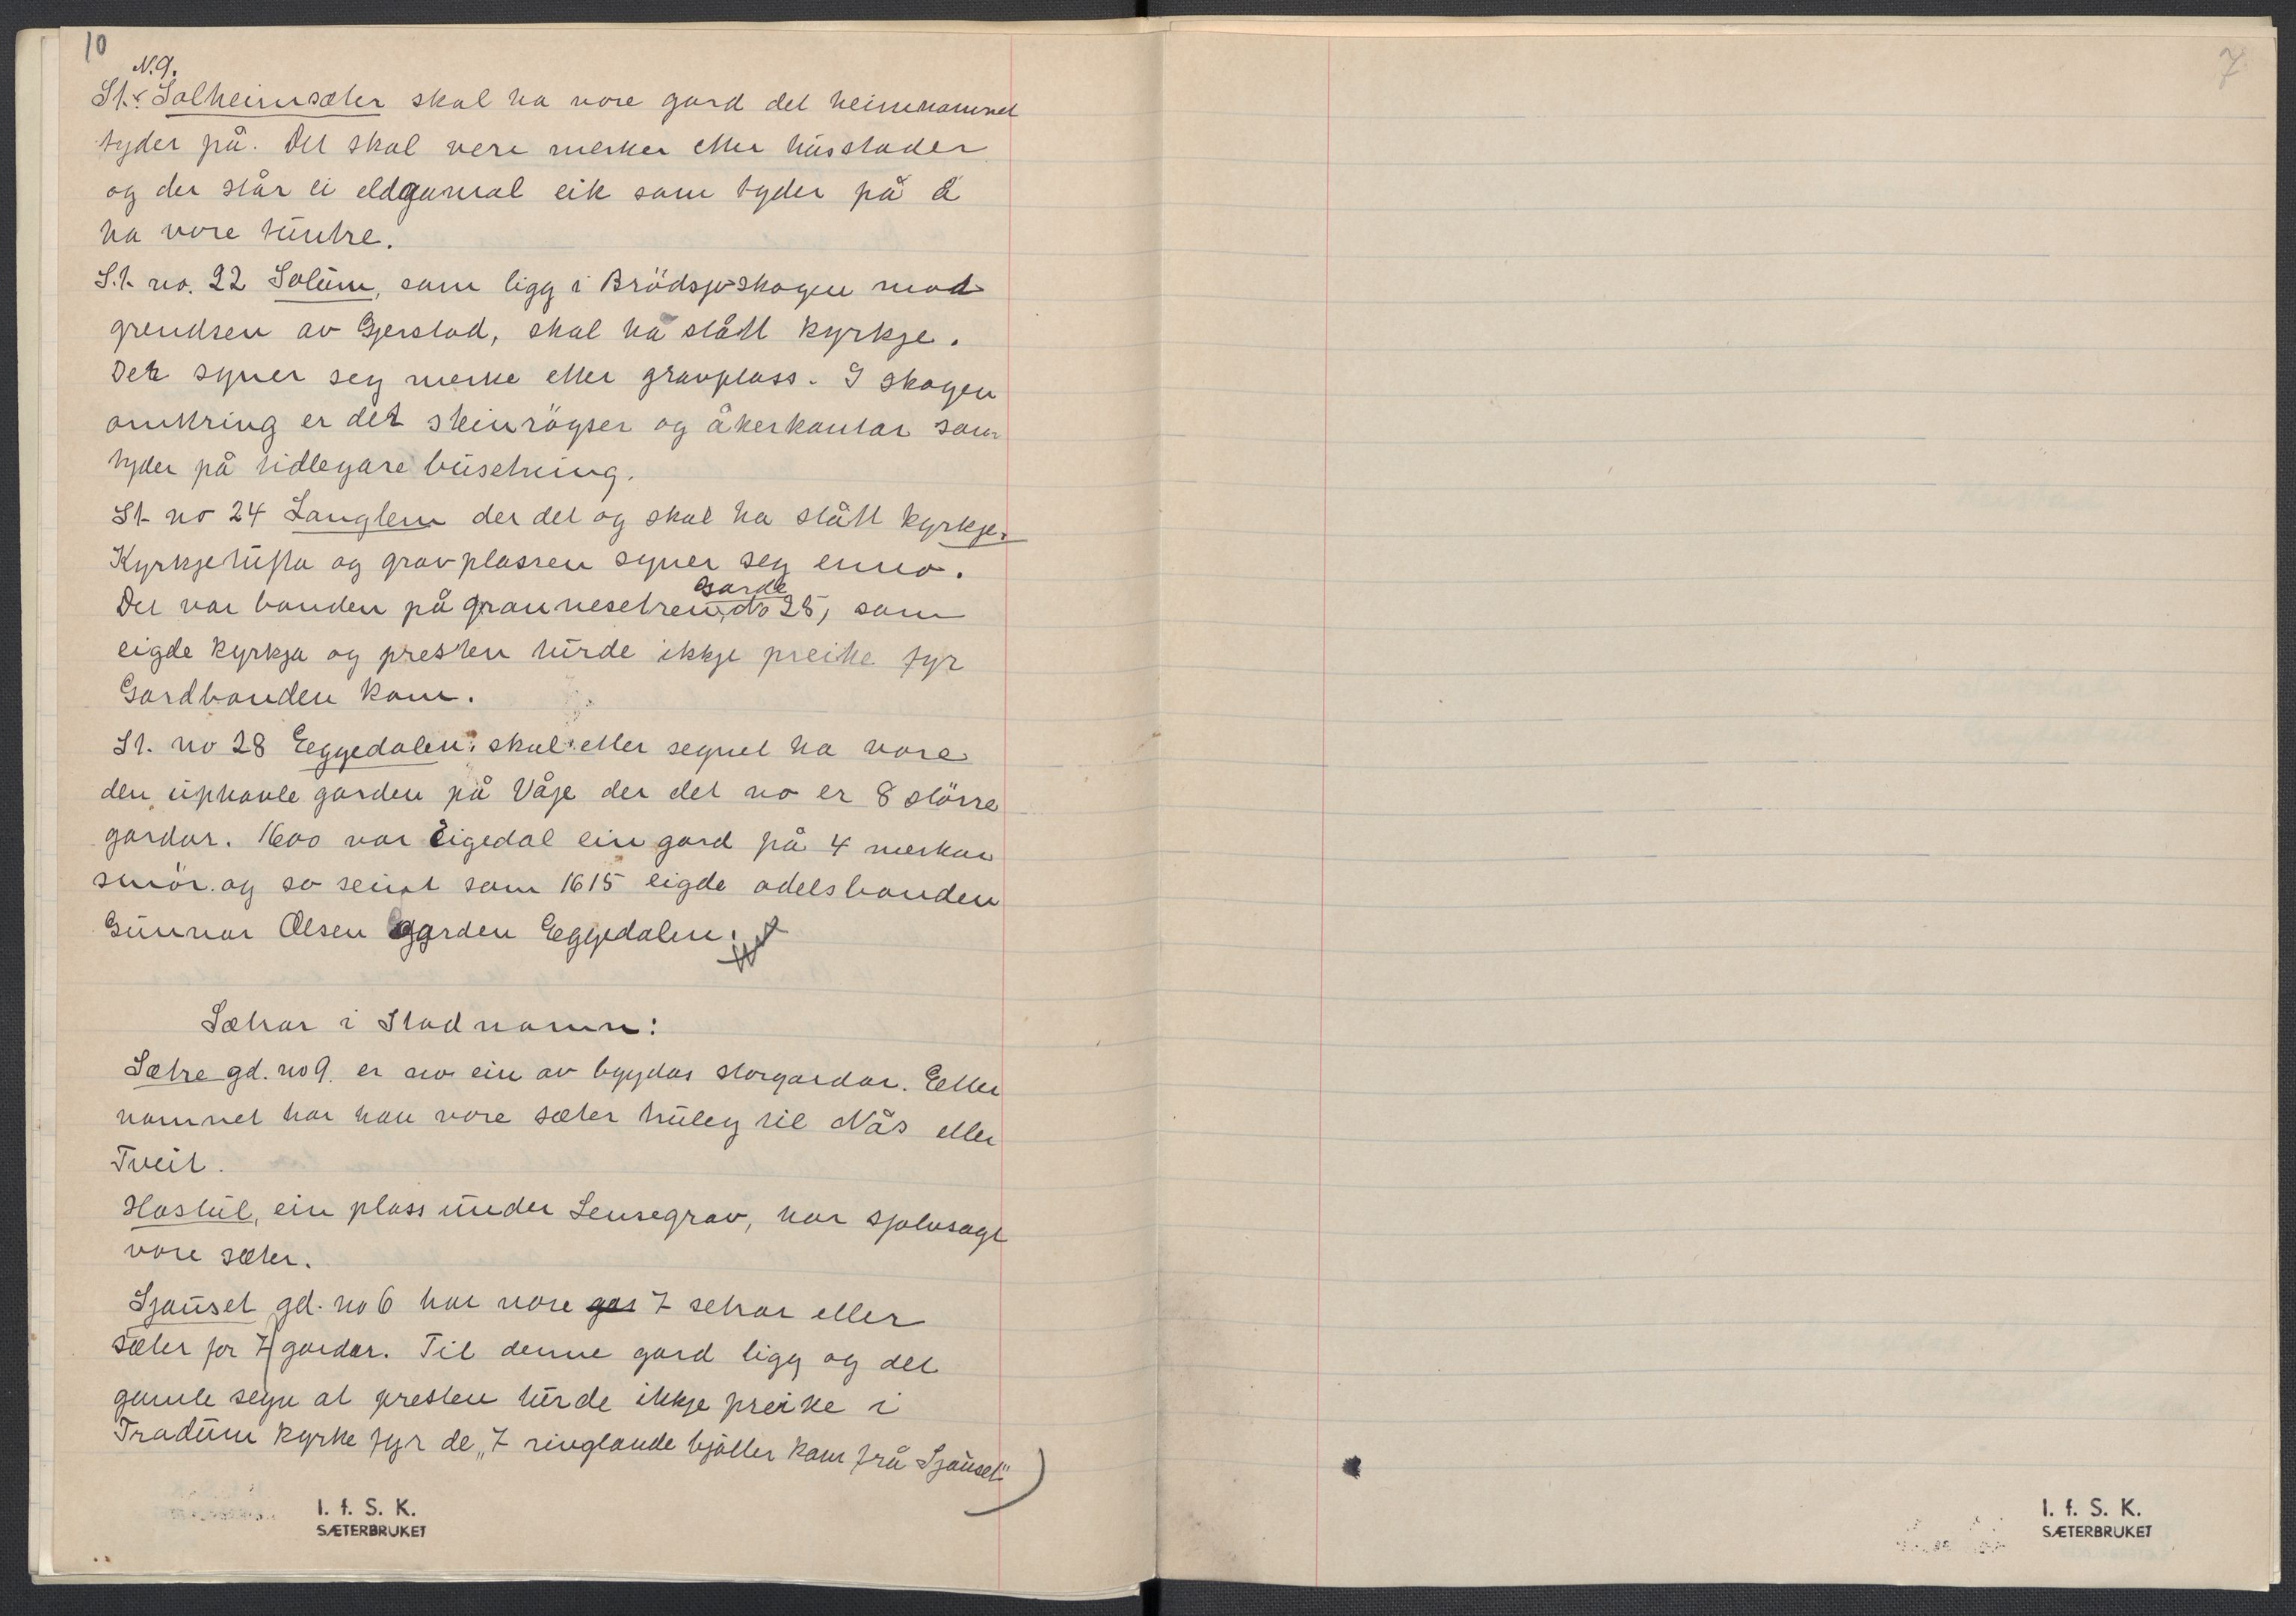 10
N.9.
St. Solheimsæter skal ha vore gard det heimenamnet
tyder på. Det skal vere merker etter husstader
og der står ei eldgamal eik som tyder på å
ha vore tuntre.
S.t. no. 22 Solum, som ligg i Brödsjöskogen mot
grendsen av Gjerstad, skal ha stått kyrkje.
Det syner seg merke etter gravplass. I skogen
omkring er det steinrögser og åkerkantar som
tyder på tidlegare busetning.
St no 24 Langlem der det og skal ha stått kyrkje.
Kyrkjetufta og gravplassen syner seg enno.
Garde
Det var bonden på grannesetren, No 25, som
eigde kyrkja og presten turde ikkje preike fyr
Gardbonden kom.
St. no 28 Eggedalen: skal etter segnet ha vore
den uphavle garden på Våje der det no er 8 större
gardar. 1600 var Eigedal ein gard på 4 merkar
smör. og so seint som 1615 eigde odelsbonden
Gunnar Olsen garden Eggedalen.
Sætrar i Stadnamn:
Sætre gd. no 9. er no ein av bygdas storgardar. Etter
namnet har han vore sæter truleg til Nås eller
Tveit.
Hastul, ein plass under Lensegrav, har sjølvsagt
vore sæter.
Sjauset gd. no 6 har vore gar 7 setrar eller
sæter for 7 gardar. Til denne gard ligg og det
gamle segn at presten turde ikkje preike i
Tradum kyrke fyr de „7 ringlande bjöller kom frå Sjauset"
I. f. S. K.
SÆTERBRUKET
7
I. f. S. K.
SÆTERBRUKET